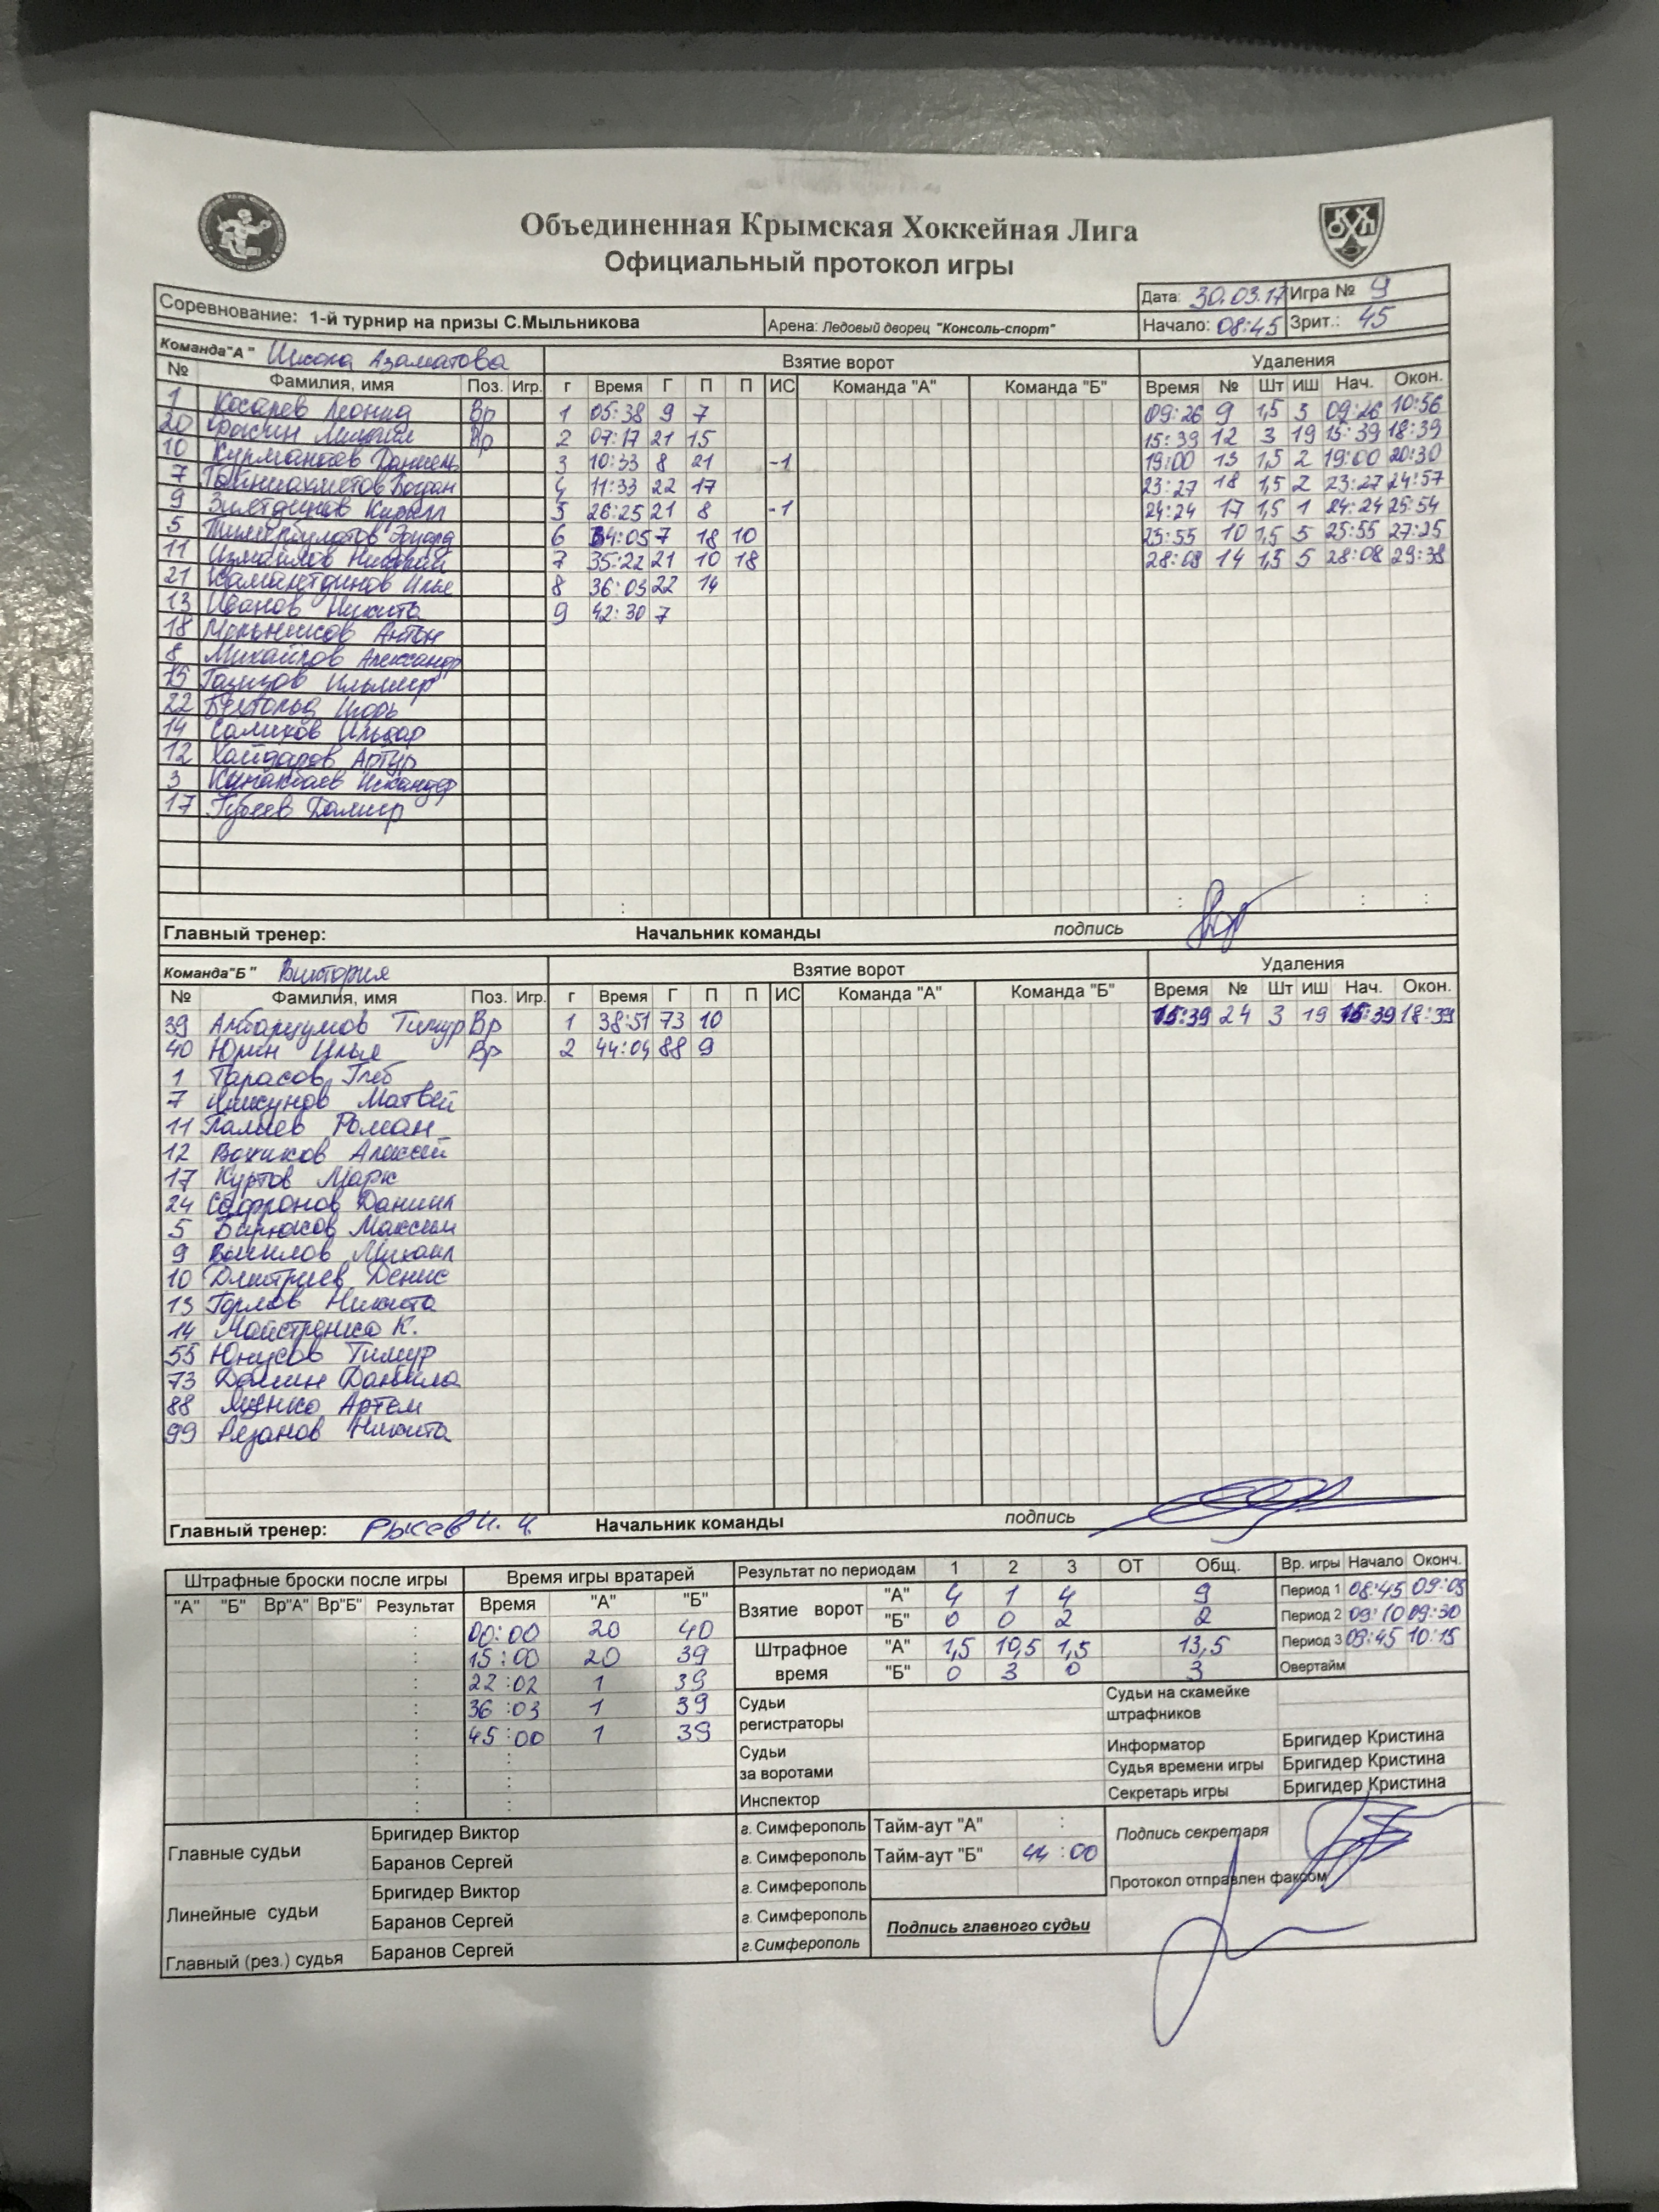 Объединенная Крымская Хоккейная Лига
Официальный протокол игры
Дата: 30.03.17 Игра № 9
Соревнование: 1-й турнир на призы С.Мыльникова Арена: Ледовый дворец "Консоль-спорт" Начало: 08:45 Зрит.: 45
Команда"А" Школа Азаматова Взятие ворот Удаления
№ Фамилия, имя Поз. Игр. г Время Г П П ИС Команда "А" Команда "Б" Время № Шт ИШ Нач. Окон.
1 Косарев Леонид Вр 1 05:38 9 7 09:26 9 1,5 3 09:26 10:56
20 Фокин Михаил Вр 2 07:17 21 15 15:39 12 3 19 15:39 18:39
10 Курманаев Даниель 3 10:33 8 21 -1 19:00 13 1,5 2 19:00 20:30
7 Богдан 4 11:33 22 17 23:27 18 1,5 2 23:27 24:57
9 Зиятдинов Кирилл 5 26:25 21 8 -1 24:24 17 1,5 1 24:24 25:54
5 Тимербулатов Эдуард 6 34:05 7 18 10 25:55 10 1,5 5 25:55 27:25
11 Измайлов Николай 7 35:22 21 10 18 28:08 14 1,5 5 28:08 29:38
21 Камалетдинов Илья 8 36:03 22 14
13 Иванов Никита 9 42:30 7
18 Мельников Антон
8 Михайлов Александр
15 Газизов Ильмир
22 Бехтольд Игорь
14 Салихов Ильдар
12 Хайдаров Артур
3 Кунакбаев Искандер
17 Губеев Дамир
:
: :
Главный тренер: Начальник команды подпись
Команда"Б" Виктория Взятие ворот Удаления
№ Фамилия, имя Поз. Игр. г Время Г П П ИС Команда "А" Команда "Б" Время № Шт ИШ Нач. Окон.
39 Амбарцумов Тимур Вр 1 38:51 73 10 15:39 24 3 19 15:39 18:39
40 Юрин Илья Вр 2 44:04 88 9
1 Тарасов Глеб
7 Матвей
11 Палиев Роман
12 Алексей
17 Куртов Марк
24 Сафронов Даниил
5 Бирюков Максим
9 Михаил
10 Дмитриев Денис
13 Горлов Никита
14 Майстренко К.
55 Юнусов Тимур
73 Демин Данила
88 Яценко Артем
99 Рязанов Никита
Главный тренер: Начальник команды подпись
Штрафные броски после игры Время игры вратарей Результат по периодам 1 2 3 ОТ Общ. Вр. игры Начало Оконч.
"А" "Б" Вр"А" Вр"Б" Результат Время "А" "Б" Взятие ворот "А" 4 1 4 9 Период 1 08:45 09:05
: 00:00 20 40 "Б" 0 0 2 2 Период 2 09:10 09:30
: 15:00 20 39 Штрафное время "А" 1,5 10,5 1,5 13,5 Период 3 09:45 10:15
: 22:02 1 39 "Б" 0 3 0 3 Овертайм
: 36:03 1 39 Судьи регистраторы Судьи на скамейке штрафников
: 45:00 1 39 Информатор Бригидер Кристина
: : Судьи за воротами Судья времени игры Бригидер Кристина
: : Инспектор Секретарь игры Бригидер Кристина
: :
Главные судьи Бригидер Виктор г. Симферополь Тайм-аут "А" : Подпись секретаря
Баранов Сергей г. Симферополь Тайм-аут "Б" 44:00
Линейные судьи Бригидер Виктор г. Симферополь Протокол отправлен факсом
Баранов Сергей г. Симферополь Подпись главного судьи
Главный (рез.) судья Баранов Сергей г.Симферополь